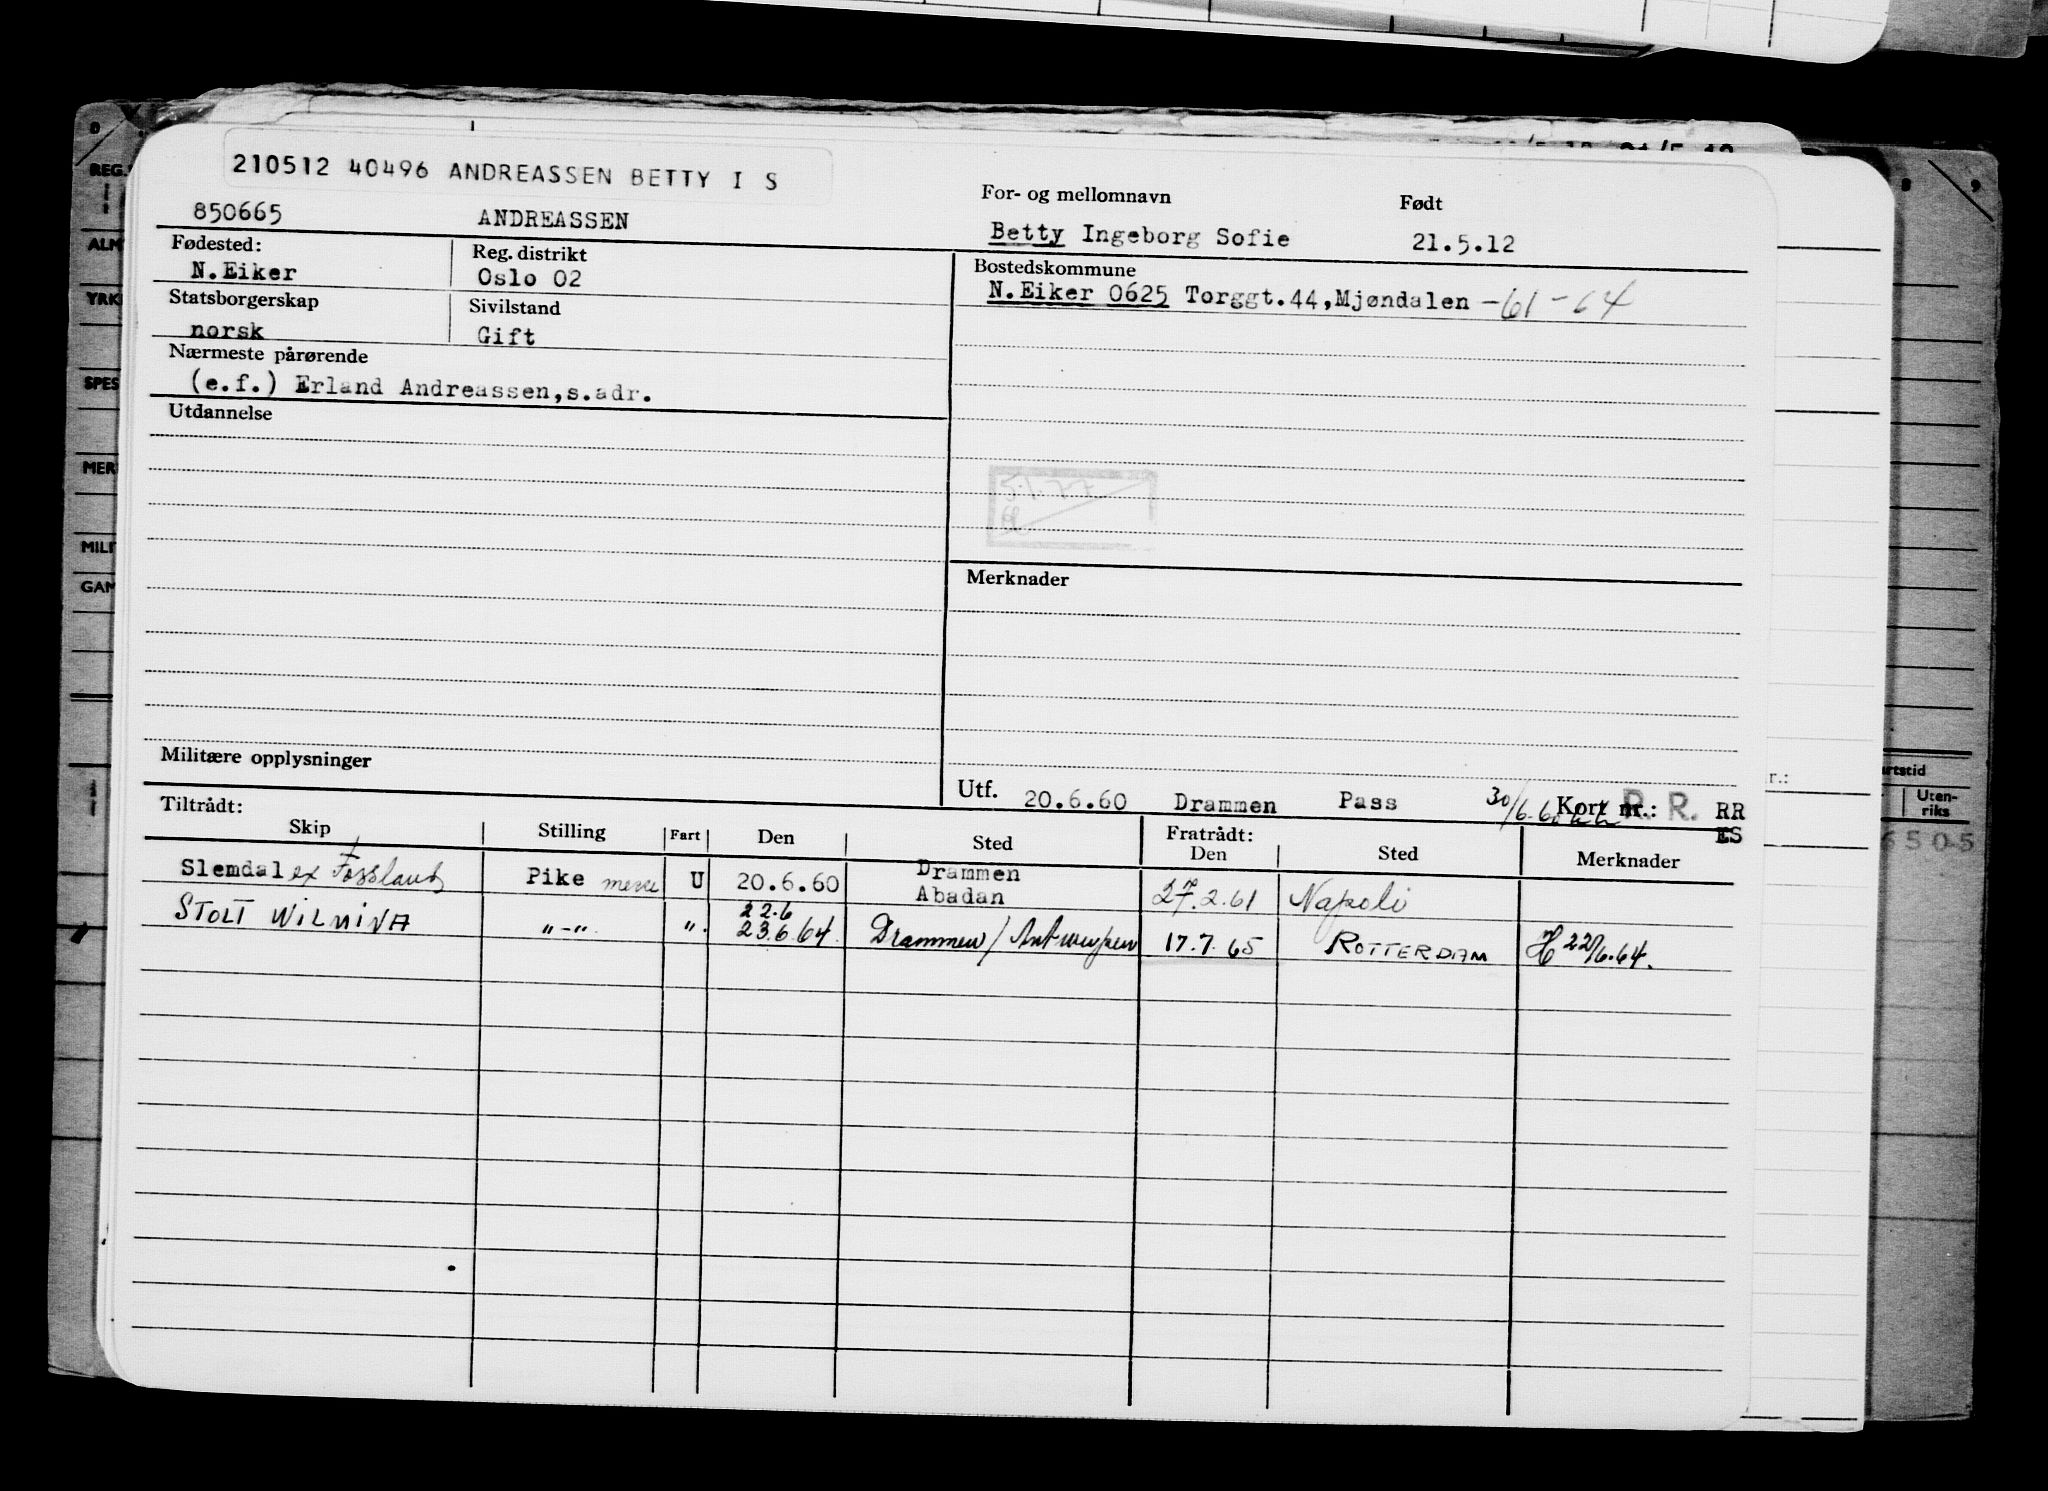 210512 40496 ANDREASSEN BETTY I S
850665 ANDREASSEN
For- og mellomnavn Født
Betty Ingeborg Sofie 21.5.12
Fødested: Reg. distrikt
N.Eiker Oslo 02
Statsborgerskap Sivilstand
norsk Gift
Bostedskommune
N.Eiker 0625 Torggt.44,Mjøndalen -61-64
Nærmeste pårørende
(e.f.) Erland Andreassen,s.adr.
Utdannelse
Merknader
Militære opplysninger
Utf. 20.6.60 Drammen Pass Kort nr.: R. R. RR
ES
Tiltrådt: Fratrådt:
Skip Stilling Fart Den Sted Den Sted Merknader
Slemdal ex Fossland Pike U 20.6.60 Drammen
Abadan 27.2.61 Napoli
STOLT WILMINA "-" ". 22.6
23.6.64. Drammen / Antwerpen 17.7.65 ROTTERDAM H 22/6.64.
REG.
ALM
YRK
SPES
MER
MILI
GAN
r.:
rtstid
Uten-
riks
6505